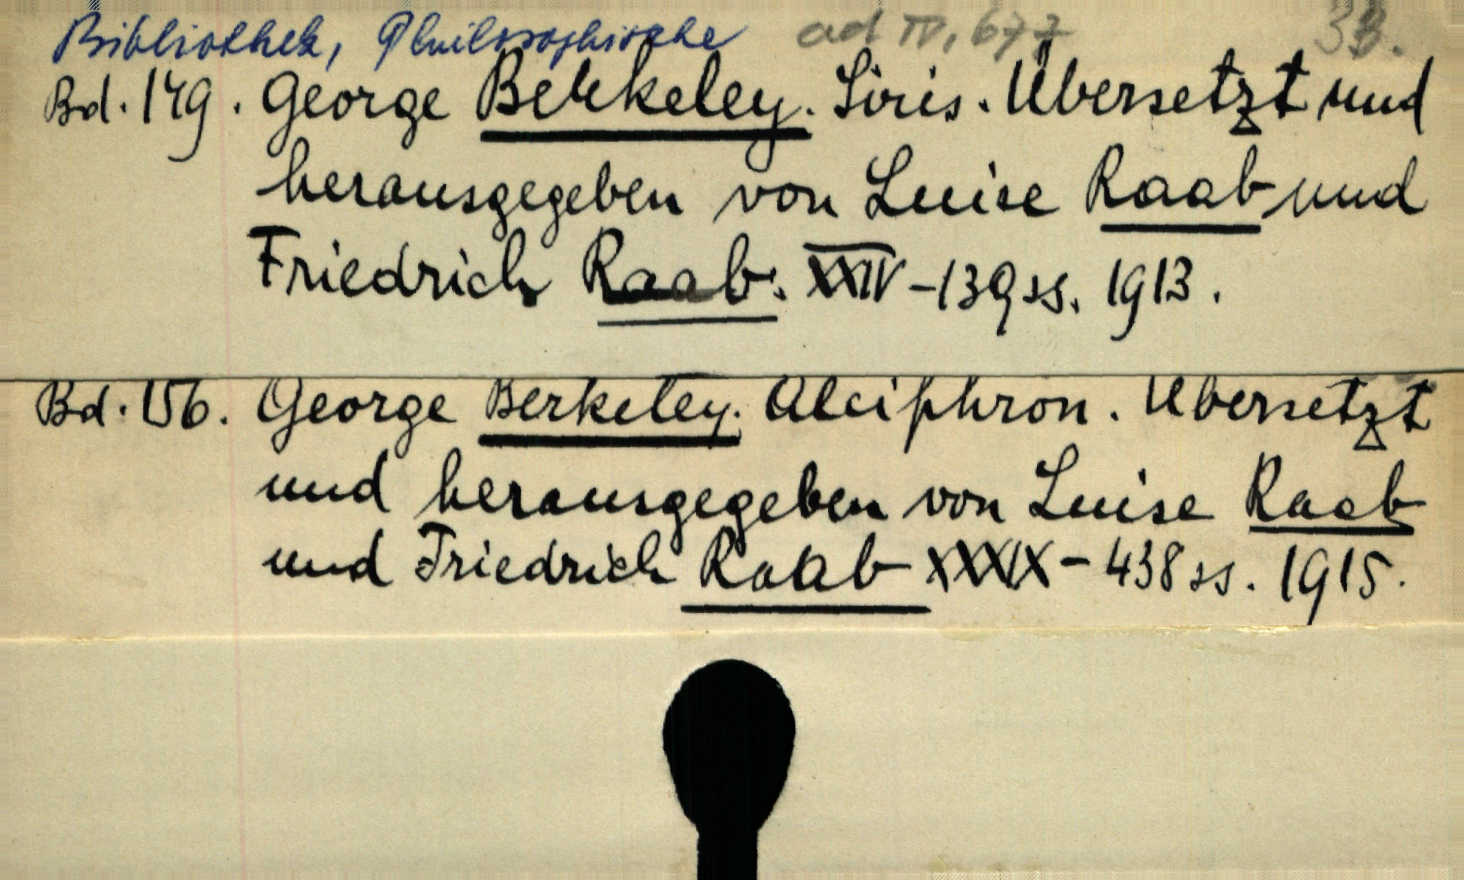 Bibliothek, Philosophische ad IV, 677 33.
Bd. 149. George Berkeley. Siris. Übersetzt und
herausgegeben von Luise Raab und
Friedrich Raab. XXIV-139 ss. 1913.
Bd. 156. George Berkeley. Alciphron. Übersetzt
und herausgegeben von Luise Raab
und Friedrich Raab XXXIX-438 ss. 1915.